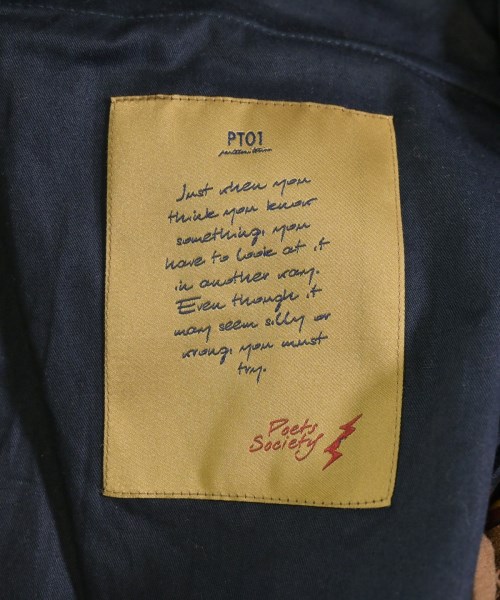 PT01
Just when you
think you know
something, you
have to look at it
in another way.
Even though it
may seem silly or
wrong, you must
try.
Poets
Society